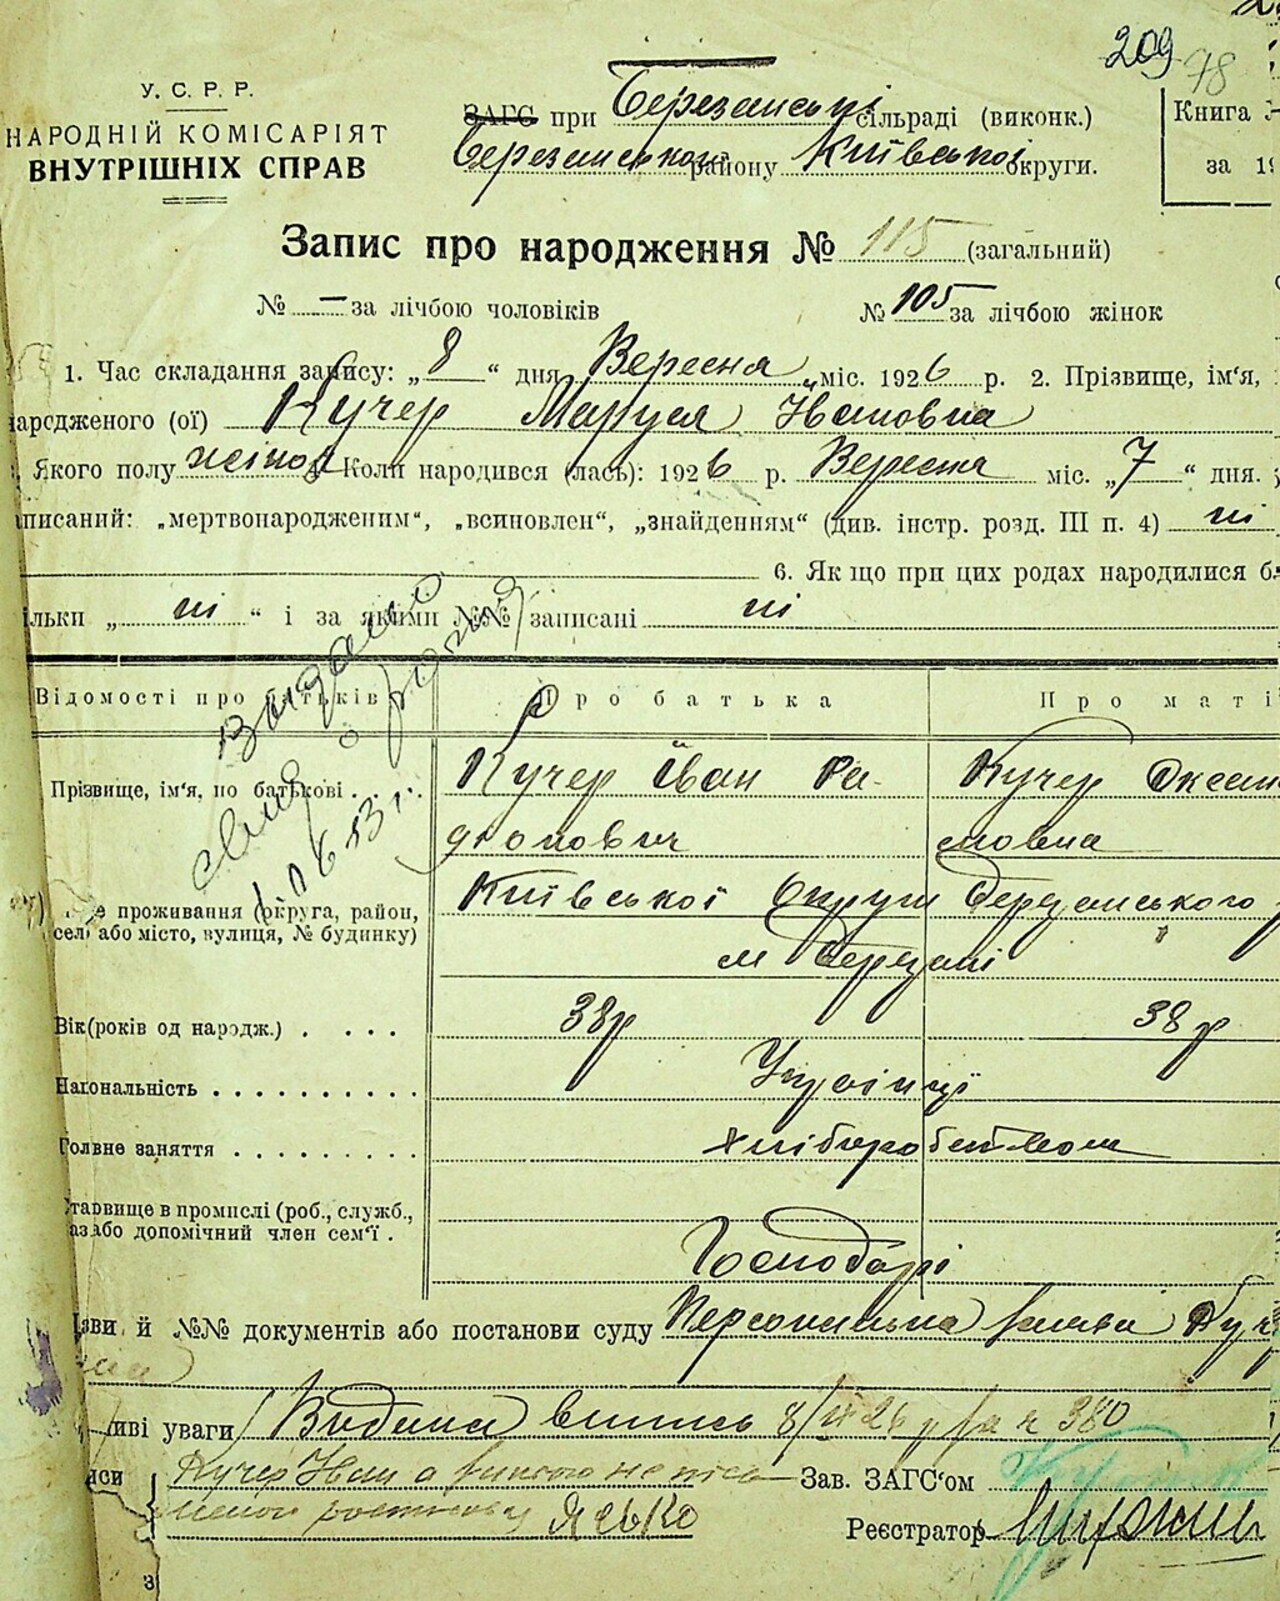 209
78
У. С. Р. Р.
НАРОДНІЙ КОМІСАРІЯТ
ВНУТРІШНІХ СПРАВ
ЗАГС при Березанські сільраді (виконк.)
Березанського району Київської округи.
Книга
за 19
Запис про народження № 115 (загальний)
№ — за лічбою чоловіків № 105 за лічбою жінок
1. Час складання запису: „8“ дня Вересня міс. 1926 р. 2. Прізвище, ім'я,
народженого (ої) Кучер Маруся Івановна
Якого полу жіноч Коли народився (лась): 1926 р. Вересня міс. „7“ дня.
писаний: „мертвонародженим“, „всиновлен“, „знайденням“ (див. інстр. розд. III п. 4) ні
6. Якщо при цих родах народилися
ільки „ні“ і за якими №№ записані ні
Відомості про батьків Про батька Про маті
Прізвище, ім'я, по батькові . . . . Кучер Іван Ра- Кучер Оксан
діонович мовна
проживання (округа, район, Київської Округи Березанського
село або місто, вулиця, № будинку)
м Березані
Вік (років од народж.) . . . . 38р 38р
Національність . . . . . . . . . . Украінці
Головне заняття . . . . . . . . . хліборобством
Становище в промислі (роб., служб.,
або допомічний член сем'ї . Господарі
й №№ документів або постанови суду Персональна заява Куч
иві уваги Видана випись 8/ІХ 26 р за № 380
Кучер Іван а Зав. ЗАГС'ом
Реєстратор
З